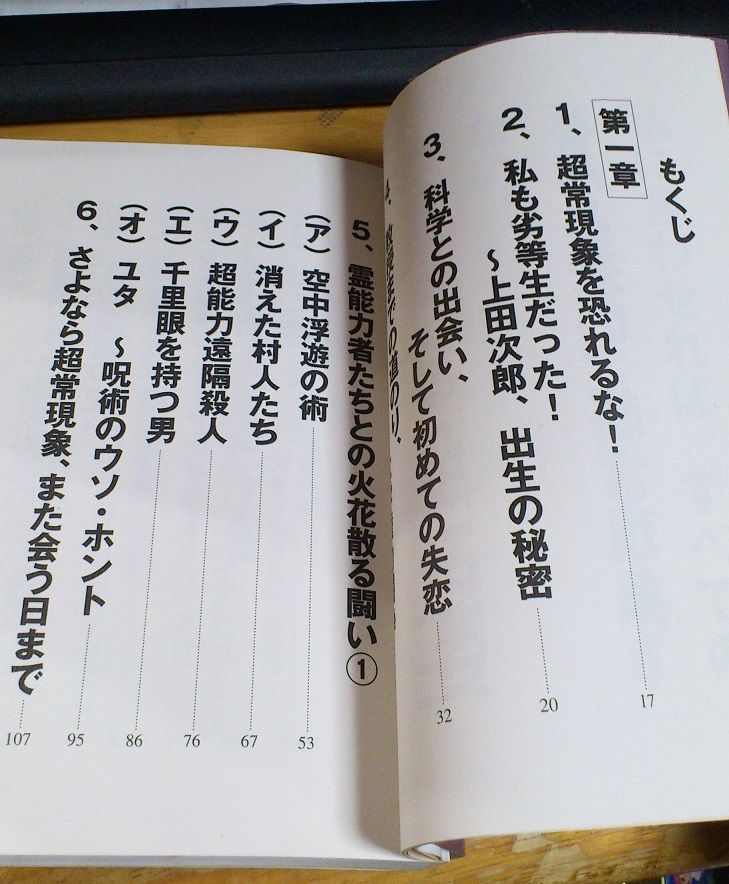 もくじ
第一章
1、超常現象を恐れるな！ 17
2、私も劣等生だった！
～上田次郎、出生の秘密 20
3、科学との出会い、
そして初めての失恋 32
4、
での道のり、
5、霊能力者たちとの火花散る闘い①
（ア）空中浮遊の術 53
（イ）消えた村人たち 67
（ウ）超能力遠隔殺人 76
（エ）千里眼を持つ男 86
（オ）ユタ ～呪術のウソ・ホント 95
6、さよなら超常現象、また会う日まで 107